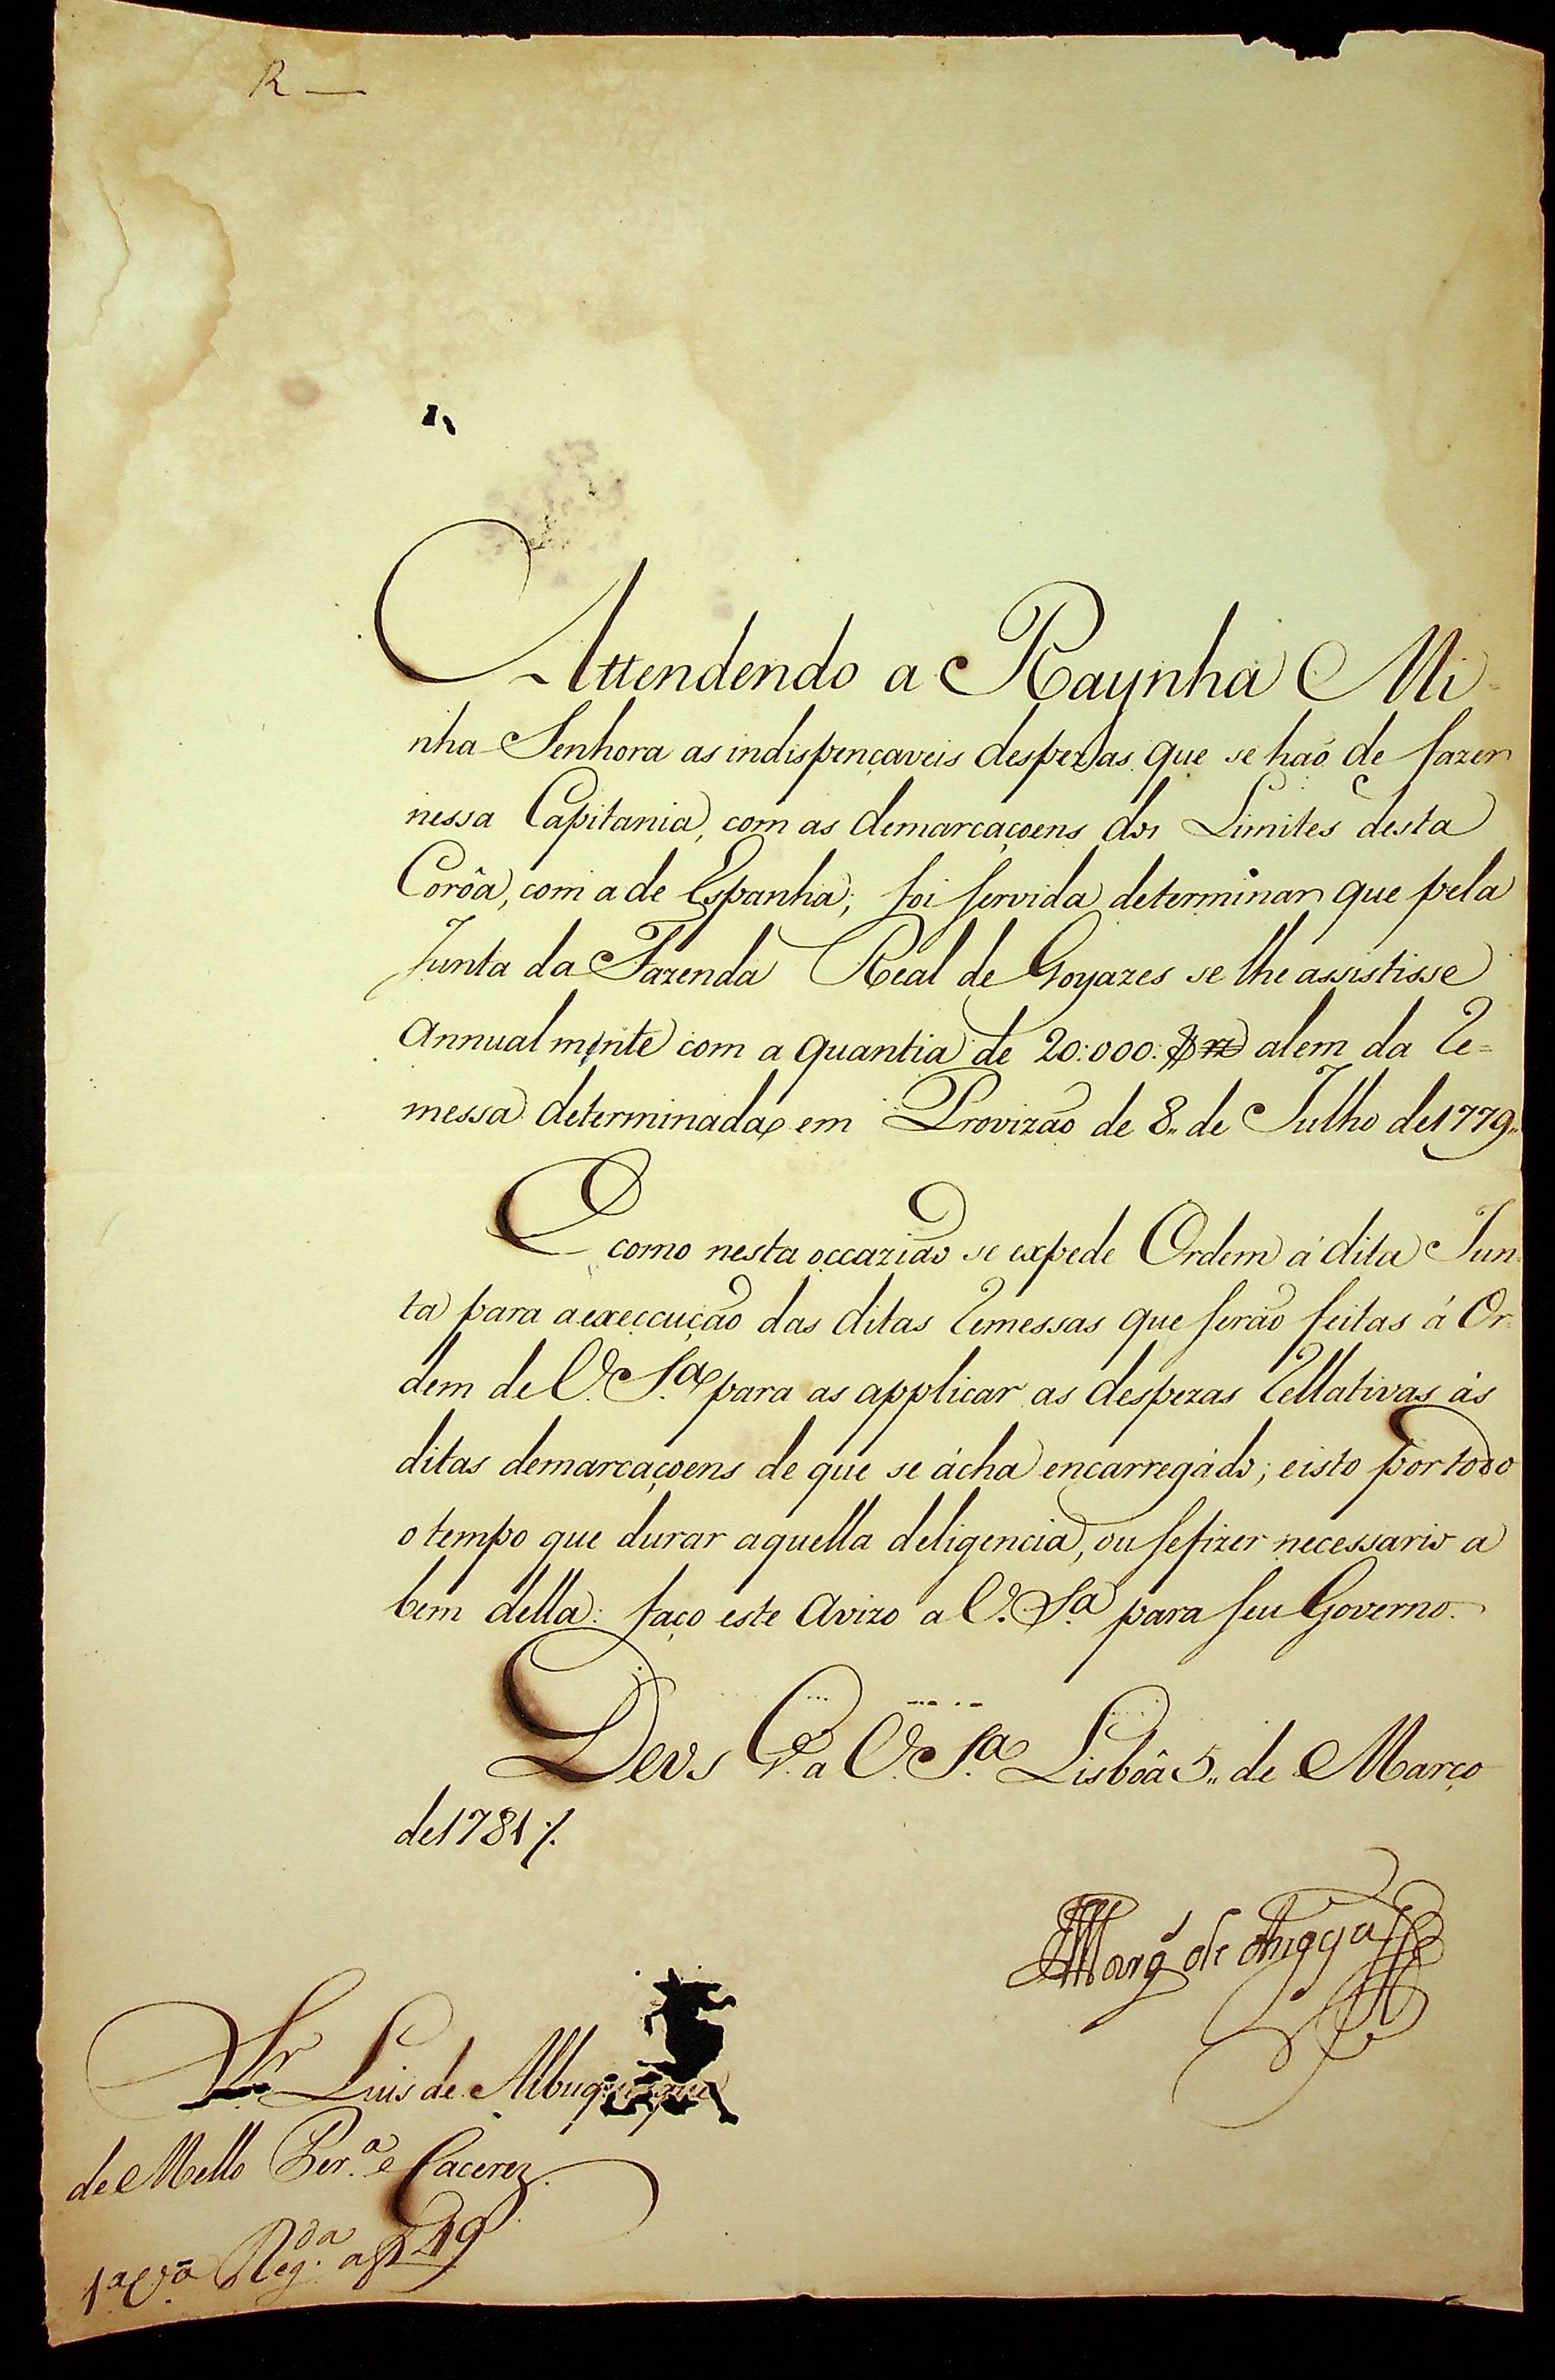 R —
Attendendo a Raynha Mi-
nha Senhora as indispençaveis despezas que se haõ de fazer
nessa Capitania, com as demarcaçoens dos Limites desta
Corôa, com a de Espanha; foi servida determinar que pela
Junta da Fazenda Real de Goyazes se lhe assistisse
annualmente com a quantia de 20:000:$ rz alem da re=
messa determinada em Provizaõ de 8,, de Julho de 1779,,
E como nesta occaziaõ se expede Ordem á dita Jun-
ta para a execcuçaõ das ditas remessas que seraõ feitas á Or-
dem de V. S.ª para as applicar as despezas rellativas ás
ditas demarcaçoens de que se ácha encarregádo; e isto por todo
o tempo que durar aquella deligencia, ou se fizer necessario a
bem della: faço este avizo a V. S.ª para seu Governo.
Deos G.e a V. S.ª Lisbôa 5,, de Março
de 1781 ./.
Marq de Angeja
Sr. Luis de Albuquerque
de Mello Per.ª e Cacerez.
1.ª V.ª Reg.da a f 219